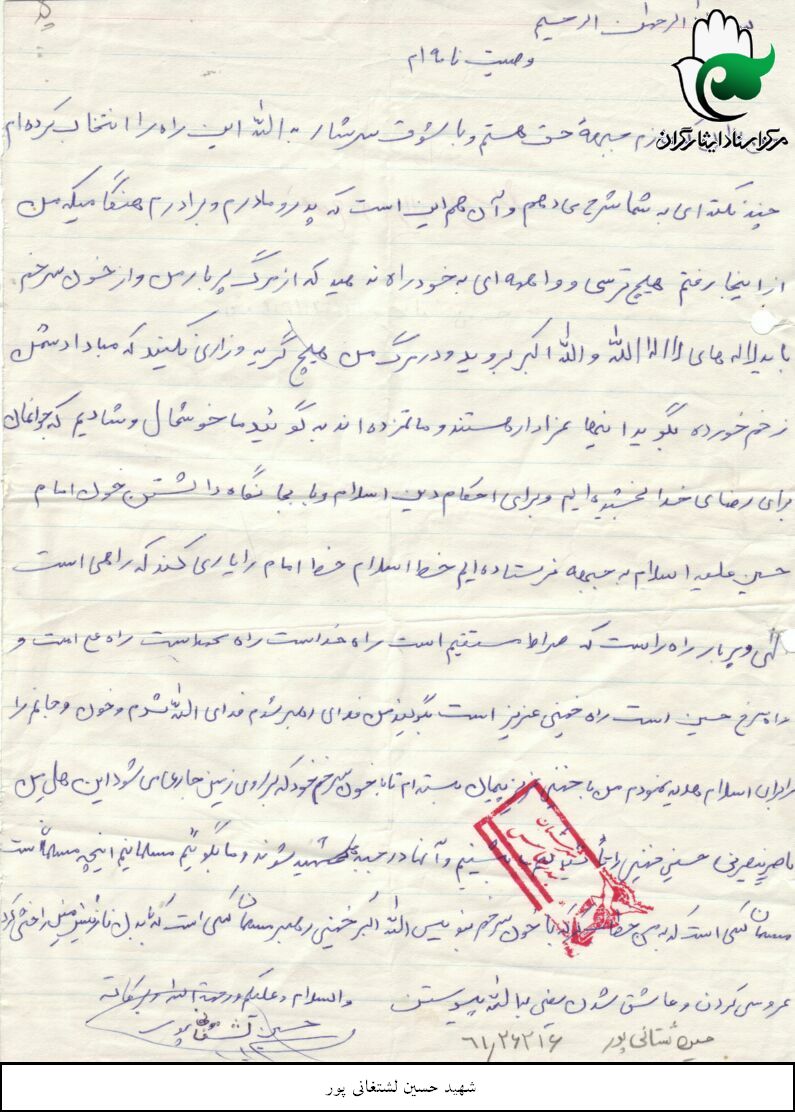 بسم الله الرحمن الرحیم
وصیت نامه ام
مرکز اسناد ایثارگران
جبهه حق هستم و با شوق سرشار به الله این راه را انتخاب کرده ام
چند نکته ای به شما شرح می دهم و آن هم این است که پدر و مادرم و برادرم هنگامیکه من
از اینجا رفتم هیچ ترسی و واهمه ای به خود راه ندهید که از مرگ پربار من و از خون سرخم
باید لاله های لااله الا الله و الله اکبر بروید و در مرگ من هیچ گریه و زاری نکنید که مبادا دشمن
زخم خورده بگوید اینها عزادار هستند و ماتمزده اند بگوئید ما خوشحال و شادیم که جوانمان
برای رضای خدا بخشیده ایم و برای احکام دین اسلام و پا بجا نگاه داشتن خون امام
حسین علیه اسلام به جبهه فرستاده ایم خط اسلام خط امام را یاری کند که راهی است
الهی و پربار راه راست که صراط مستقیم است راه خداست راه محمد است راه علی است و
راه سرخ حسین است راه خمینی عزیز است بگوئید من فدای رهبر شدم فدای الله شدم و خون و جانم را
برای اسلام هدیه نمودم من با خمینی عزیز پیمان بسته ام تا با خون سرخ خود که بر روی زمین جاری می شود این هل من
ناصر ینصرنی حسینی خمینی را بنشینیم و آنها در جبهه شهید شوند و ما بگوئیم مسلمانیم اینچه مسلمانیست
مسلمان کسی است که با خون سرخم بنویس الله اکبر خمینی رهبر مسلمان کسی است که
عروسی کردن و عاشق شدن یعنی به الله پیوستن والسلام و علیکم و رحمة الله و برکاته
حسین
۶۱/۲۶۲۱۶
شهید حسین لشتغانی پور